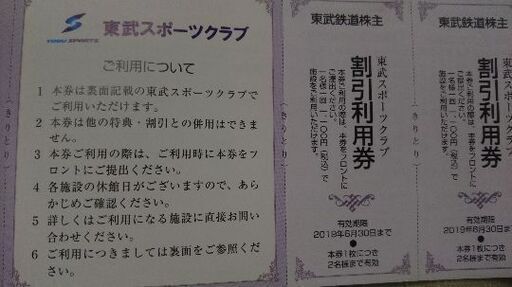 東武スポーツクラブ
TOBU SPORTS
ご利用について
1 本券は裏面記載の東武スポーツクラブで
ご利用いただけます。
2 本券は他の特典・割引との併用はできま
せん。
3 本券ご利用の際は、ご利用時に本券をフ
ロントにご提出ください。
4 各施設の休館日がございますので、あら
かじめご確認ください。
5 詳しくはご利用になる施設に直接お問い
合わせください。
6 ご利用につきましては裏面をご参照くだ
さい。
(きりとり)
東武鉄道株主
東武スポーツクラブ
割引利用券
本券ご利用の際は、本券をフロントに
ご提出ください。
一名様一回一、一〇〇円(税込)で
施設をご利用いただけます。
有効期限
2019年6月30日まで
●
本券1枚につき
2名様まで有効
(きりとり)
東武鉄道株主
東武スポーツクラブ
割引利用券
本券ご利用の際は、本券をフロントに
ご提出ください。
一名様一回一、一〇〇円(税込)で
施設をご利用いただけます。
有効期限
2019年6月30日まで
●
本券1枚につき
2名様まで有効